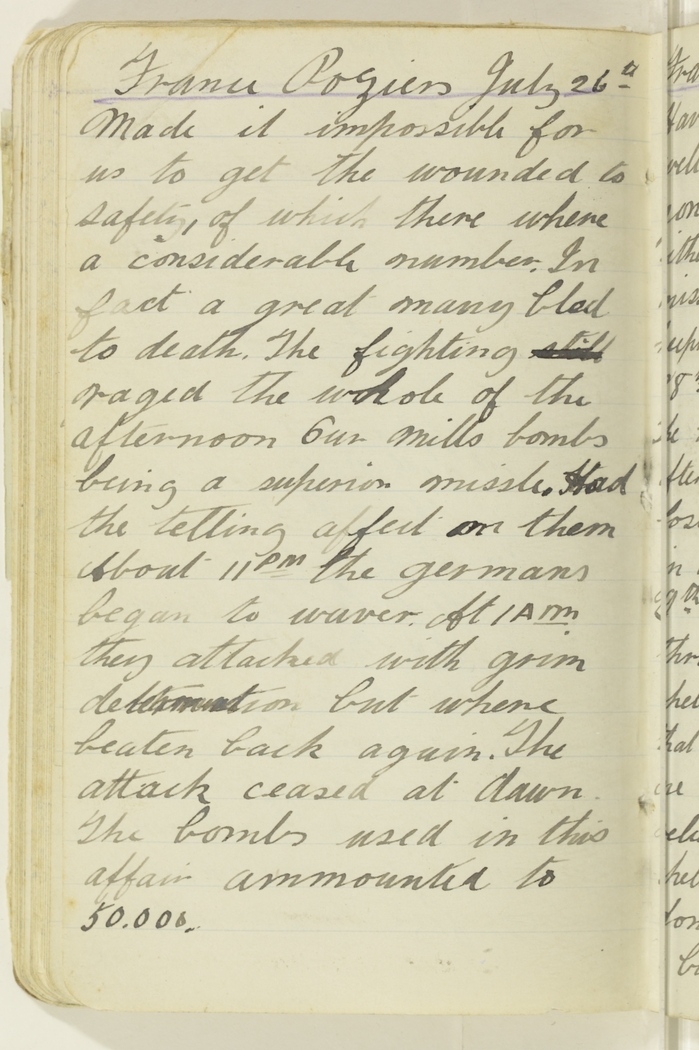 France Poziers July 26th
Made it impossible for
us to get the wounded to
safety, of which there where
a considerable number. In
fact a great many bled
to death. The fighting still
raged the whole of the
afternoon Our mills bombs
being a superior missle. Had
the telling affect on them
About 11 PM the germans
began to waver. At 1 AM
they attacked with grim
determination but where
beaten back again. The
attack ceased at dawn.
The bombs used in this
affair ammounted to
50.000.